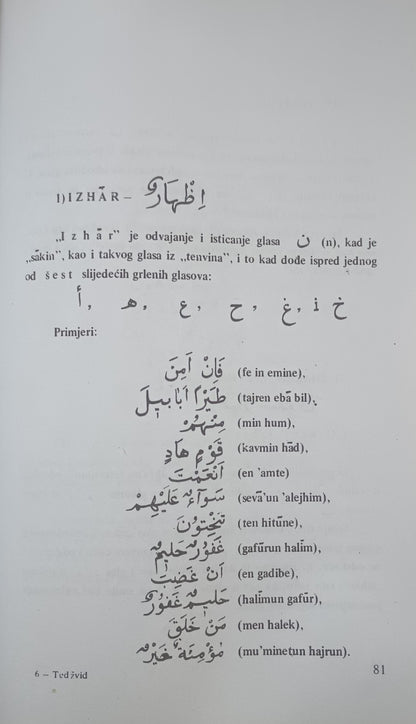 1) I Z H Ā R – اِظْهَارٌ
„I z h ā r" je odvajanje i isticanje glasa ن (n), kad je
„sākin", kao i takvog glasa iz „tenvina", i to kad dođe ispred jednog
od š e s t slijedećih grlenih glasova:
أ , ه , ع , ح , غ i خ
Primjeri:
فَاِنْ اَمِنَ (fe in emine),
طَيْرًا اَبَابيلَ (tajren ebā bil),
مِنْهُمْ (min hum),
قَوْمٍ هَادٍ (kavmin hād),
اَنْعَمْتَ (en 'amte)
سَوَآءٌ عَلَيْهِمْ (sevā'un 'alejhim),
تَنْحِتُونَ (ten hitūne),
غَفُورٌ حَليمٌ (gafūrun halīm),
اَنْ غَضِبَ (en gadibe),
حَليمٌ غَفُورٌ (halīmun gafūr),
مَنْ خَلَقَ (men halek),
مُؤْمِنَةٌ خَيْرٌ (mu'minetun hajrun).
6 – Tedžvid 81